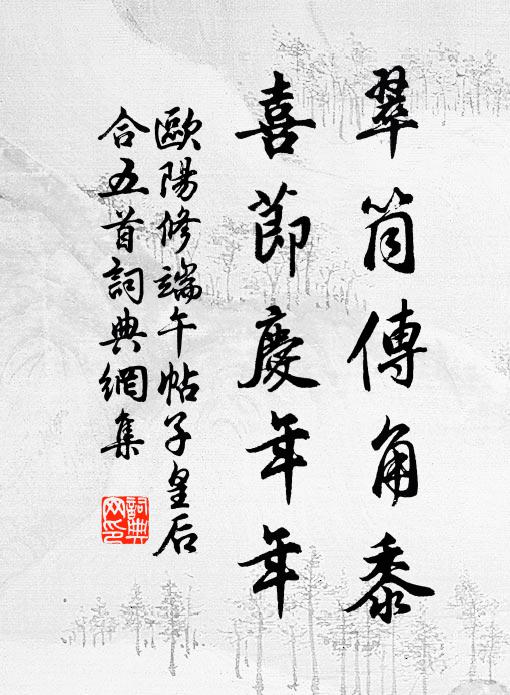 翠筒傳角黍
喜節慶年年
歐陽修端午帖子皇后
合五首詞典網集
詞典網印